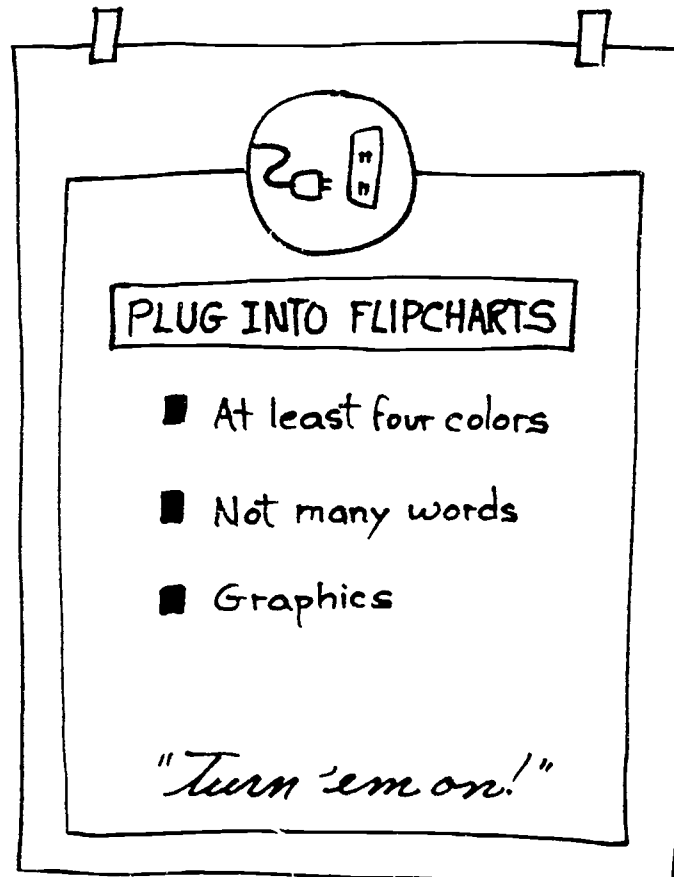 PLUG INTO FLIPCHARTS
■ At least four colors
■ Not many words
■ Graphics
"Turn 'em on!"